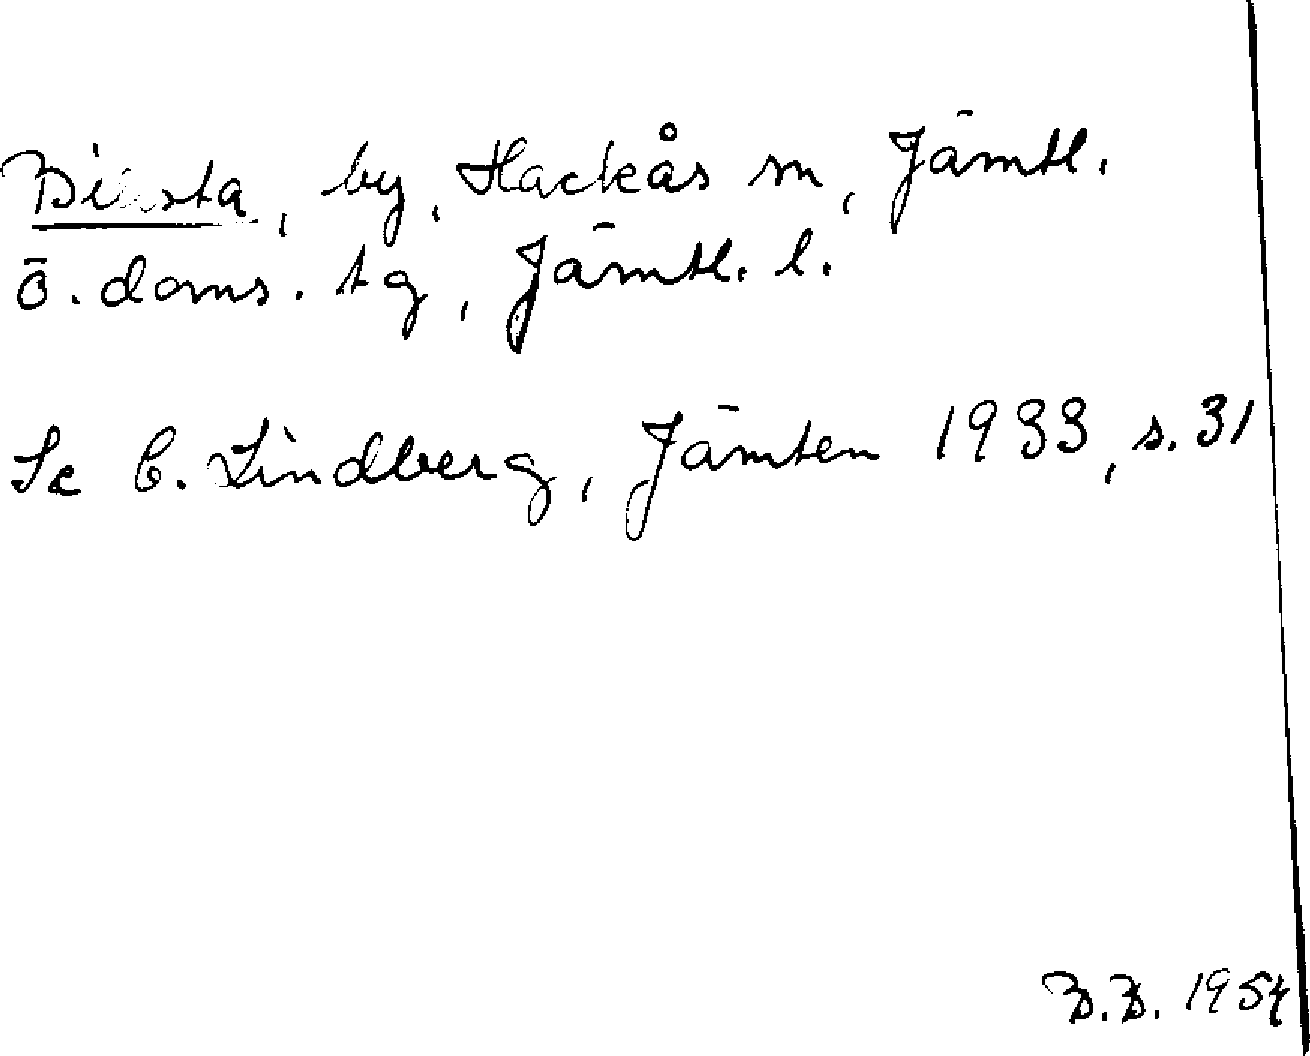 Billsta, by, Hackås sn, Jämtl.
ö. doms. tg, Jämtl. l.
Se C. Lindberg, Jämten 1933, s. 31
B.B. 1954